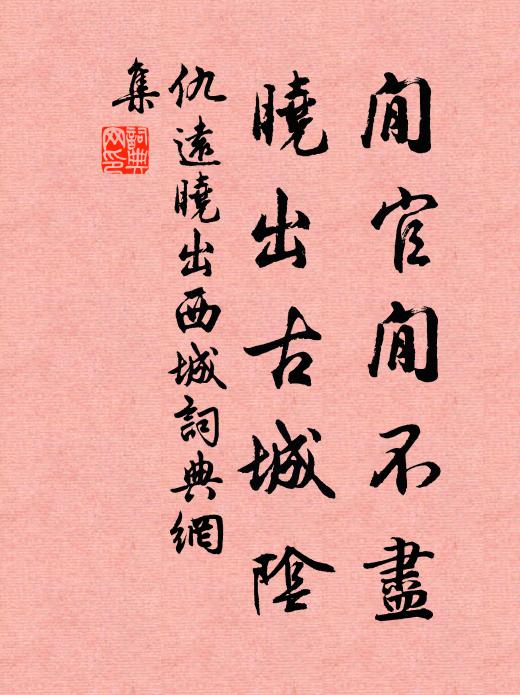 閒官閒不盡
曉出古城陰
仇遠曉出西城詞典網
集
詞典網印